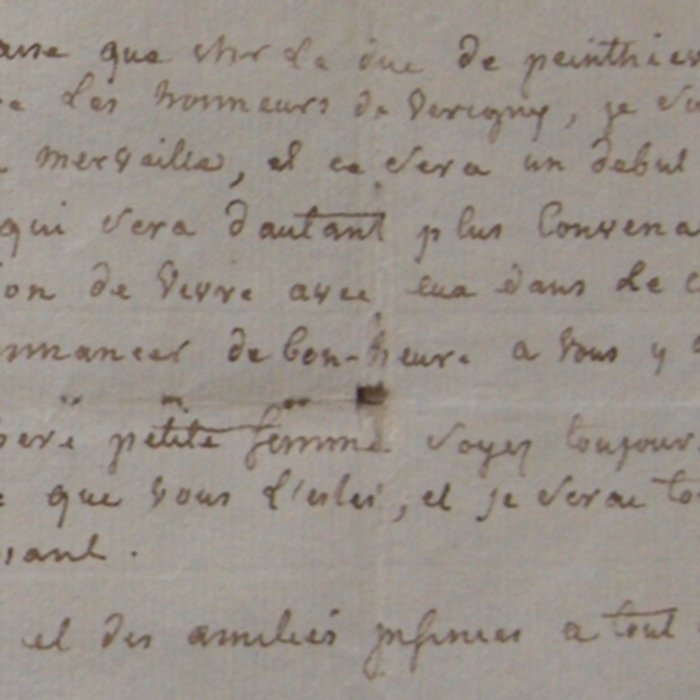 que chez Le duc de peinthiev
Les honneurs de Verigny, je
merveille, et ce sera un debut
qui sera dautant plus Convena
de Vivre avec eux dans Le
de bon-heure a Vous y
petite femme soyez toujours
que vous L'estes, et je serai to

et des amitiés jnfinies a tout